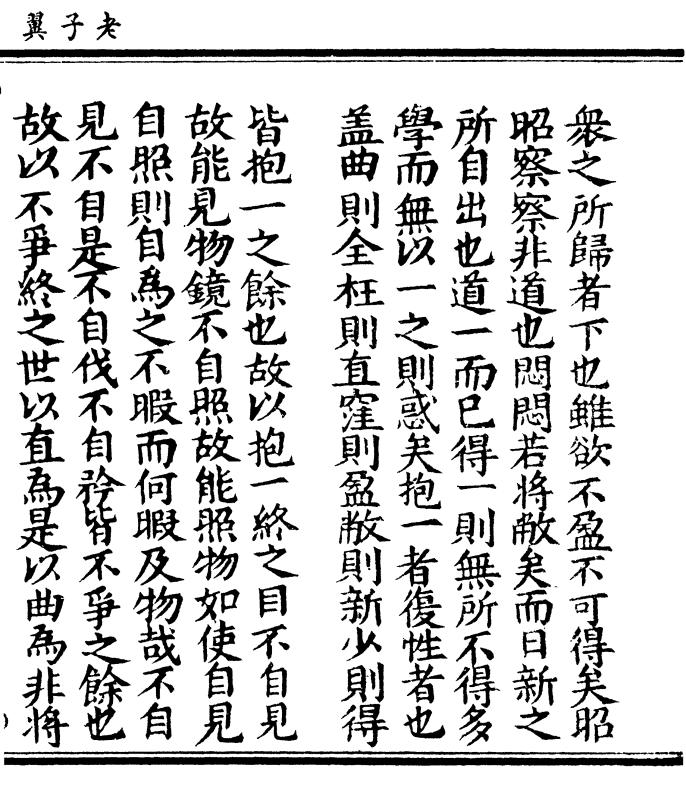 老子翼
衆之所歸者下也雖欲不盈不可得矣昭
昭察察非道也悶悶若將敝矣而日新之
所自出也道一而已得一則無所不得多
學而無以一之則惑矣抱一者復性者也
盖曲則全枉則直窪則盈敝則新少則得
皆抱一之餘也故以抱一終之目不自見
故能見物鏡不自照故能照物如使自見
自照則自爲之不暇而何暇及物哉不自
見不自是不自伐不自矜皆不爭之餘也
故以不爭終之世以直為是以曲為非將